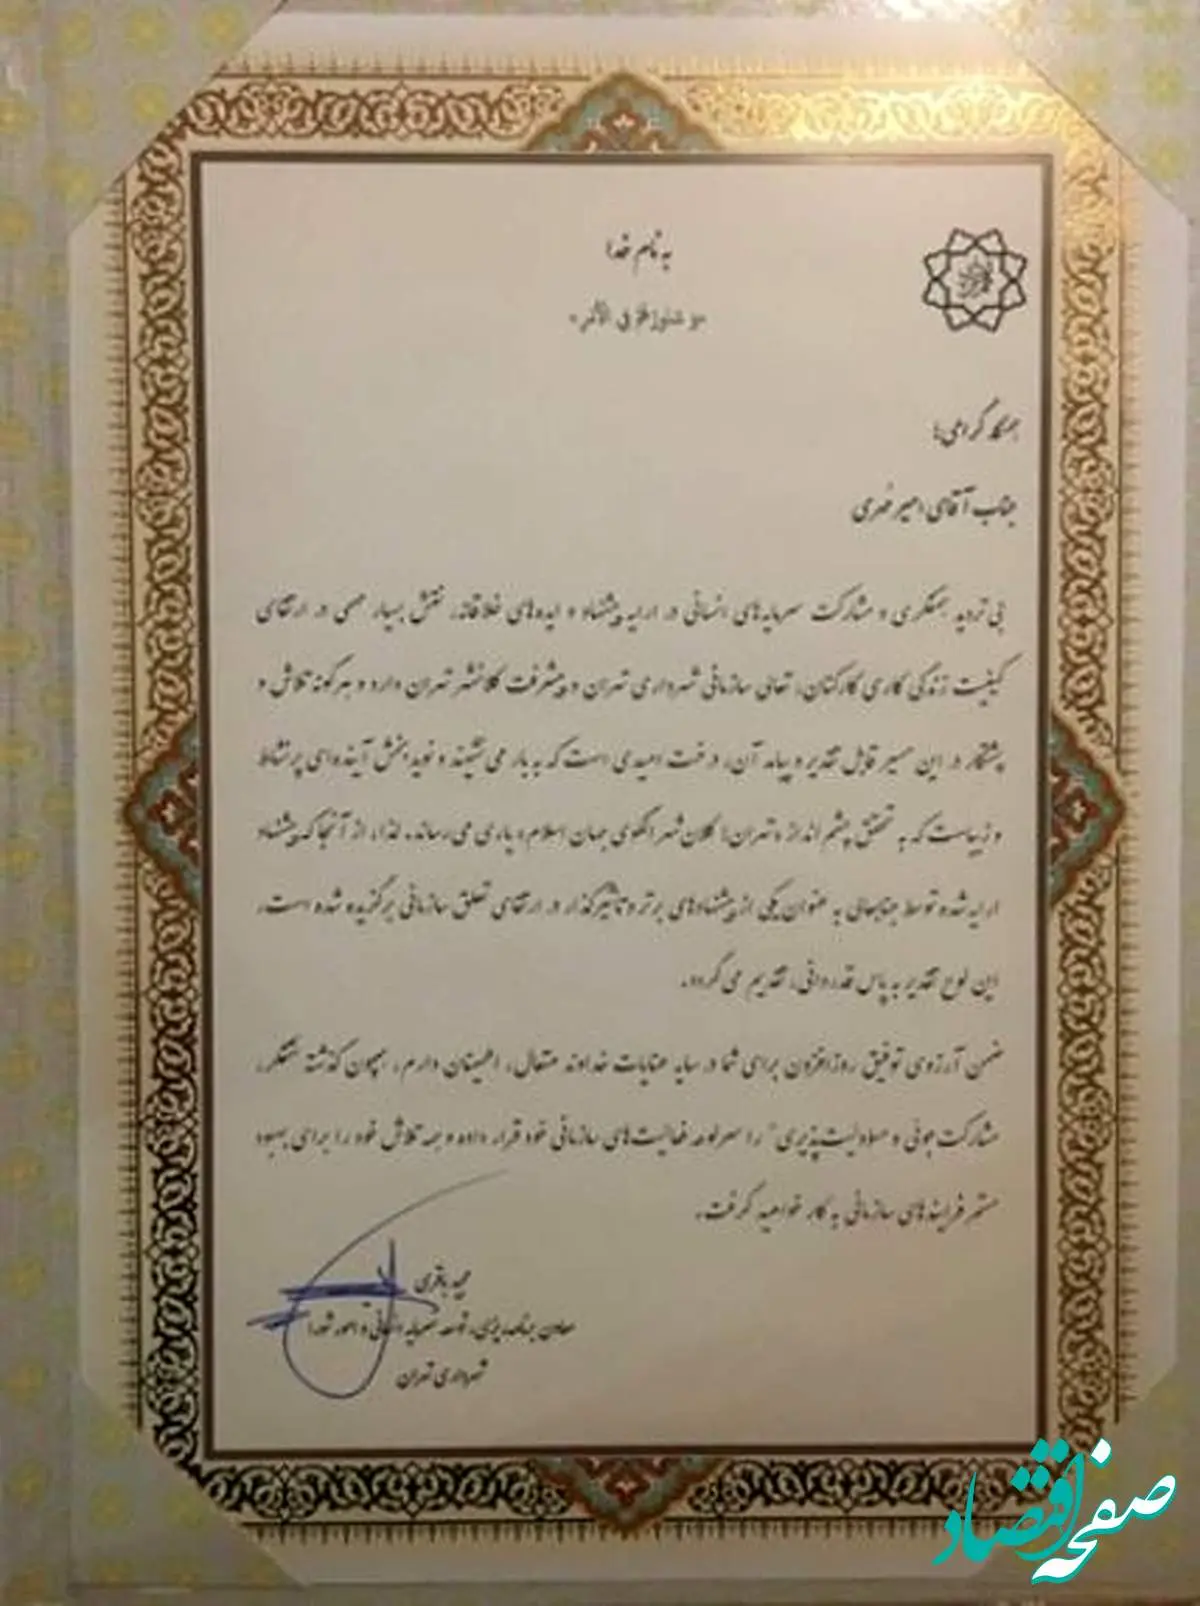 به نام خدا
«و شاورهم فی الأمر»
همکار گرامی؛
جناب آقای امیر مُهری
بی تردید همفکری و مشارکت سرمایه‌های انسانی در ارایه پیشنهاد و ایده‌های خلاقانه، نقش بسیار مهمی در ارتقای
کیفیت زندگی کاری کارکنان، تعالی سازمانی شهرداری تهران و پیشرفت کلانشهر تهران دارد و هرگونه تلاش و
پشتکار در این مسیر قابل تقدیر و پیامد آن، درخت امیدی است که به بار می‌نشیند و نوید بخش آینده‌ای پرنشاط
و زیباست که به تحقق چشم انداز «تهران؛ کلان شهر الگوی جهان اسلام» یاری می‌رساند. لذا، از آنجا که پیشنهاد
ارایه شده توسط جنابعالی به عنوان یکی از پیشنهادهای برتر و تاثیرگذار در ارتقای تعلق سازمانی برگزیده شده است،
این لوح تقدیر به پاس قدردانی، تقدیم می گردد.
ضمن آرزوی توفیق روزافزون برای شما در سایه عنایات خداوند متعال، اطمینان دارم، همچون گذشته "تفکر،
مشارکت جوئی و مسوولیت‌پذیری" را سرلوحه فعالیت‌های سازمانی خود قرار داده و همه تلاش خود را برای بهبود
مستمر فرایندهای سازمانی به کار خواهید گرفت.
باقری
معاون برنامه‌ریزی، توسعه سرمایه انسانی و امور شورا
شهرداری تهران
صفحه اقتصاد